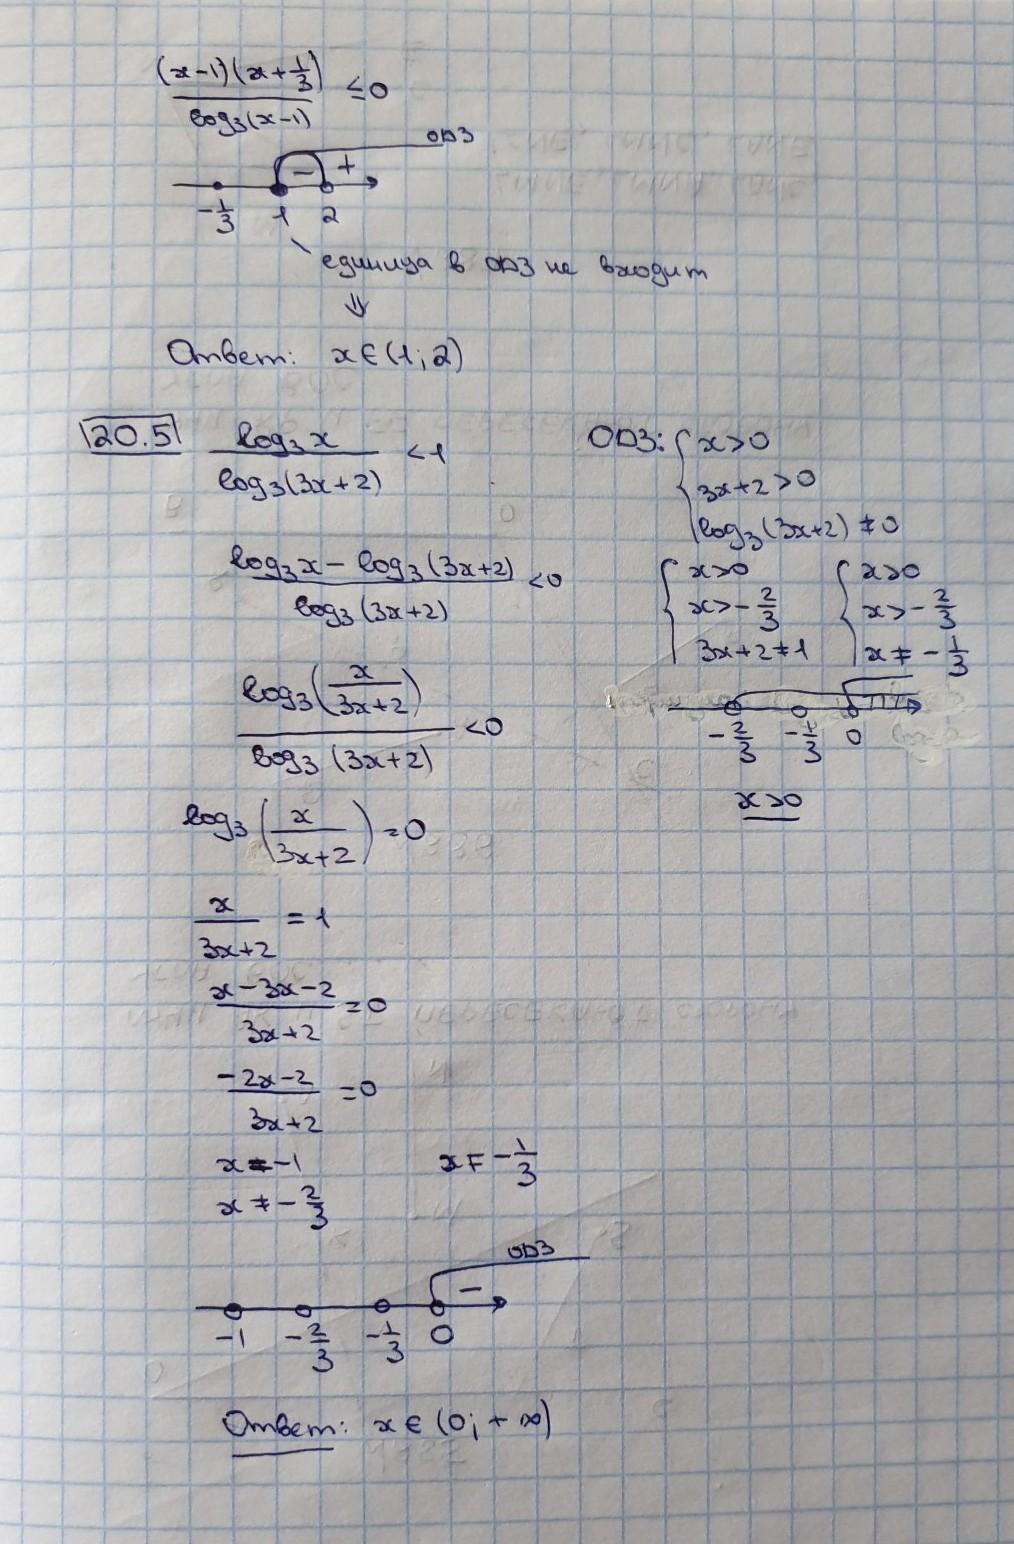 (x-1)(x+1/3) / log₃(x-1) ≤ 0
ОДЗ
- +
-1/3 1 2
единица в ОДЗ не входит
⇓
Ответ: x∈(1;2)
20.5 log₃x / log₃(3x+2) < 1
ОДЗ: { x>0
3x+2>0
log₃(3x+2) ≠ 0
(log₃x - log₃(3x+2)) / log₃(3x+2) < 0
{ x>0 { x>0
x>-2/3 x>-2/3
3x+2≠1 x≠-1/3
-2/3 -1/3 0
x>0
log₃(x/(3x+2)) / log₃(3x+2) < 0
log₃(x/(3x+2)) = 0
x/(3x+2) = 1
(x-3x-2)/(3x+2) = 0
(-2x-2)/(3x+2) = 0
x=-1 x≠-1/3
x≠-2/3
ОДЗ
-
-1 -2/3 -1/3 0
Ответ: x∈(0;+∞)